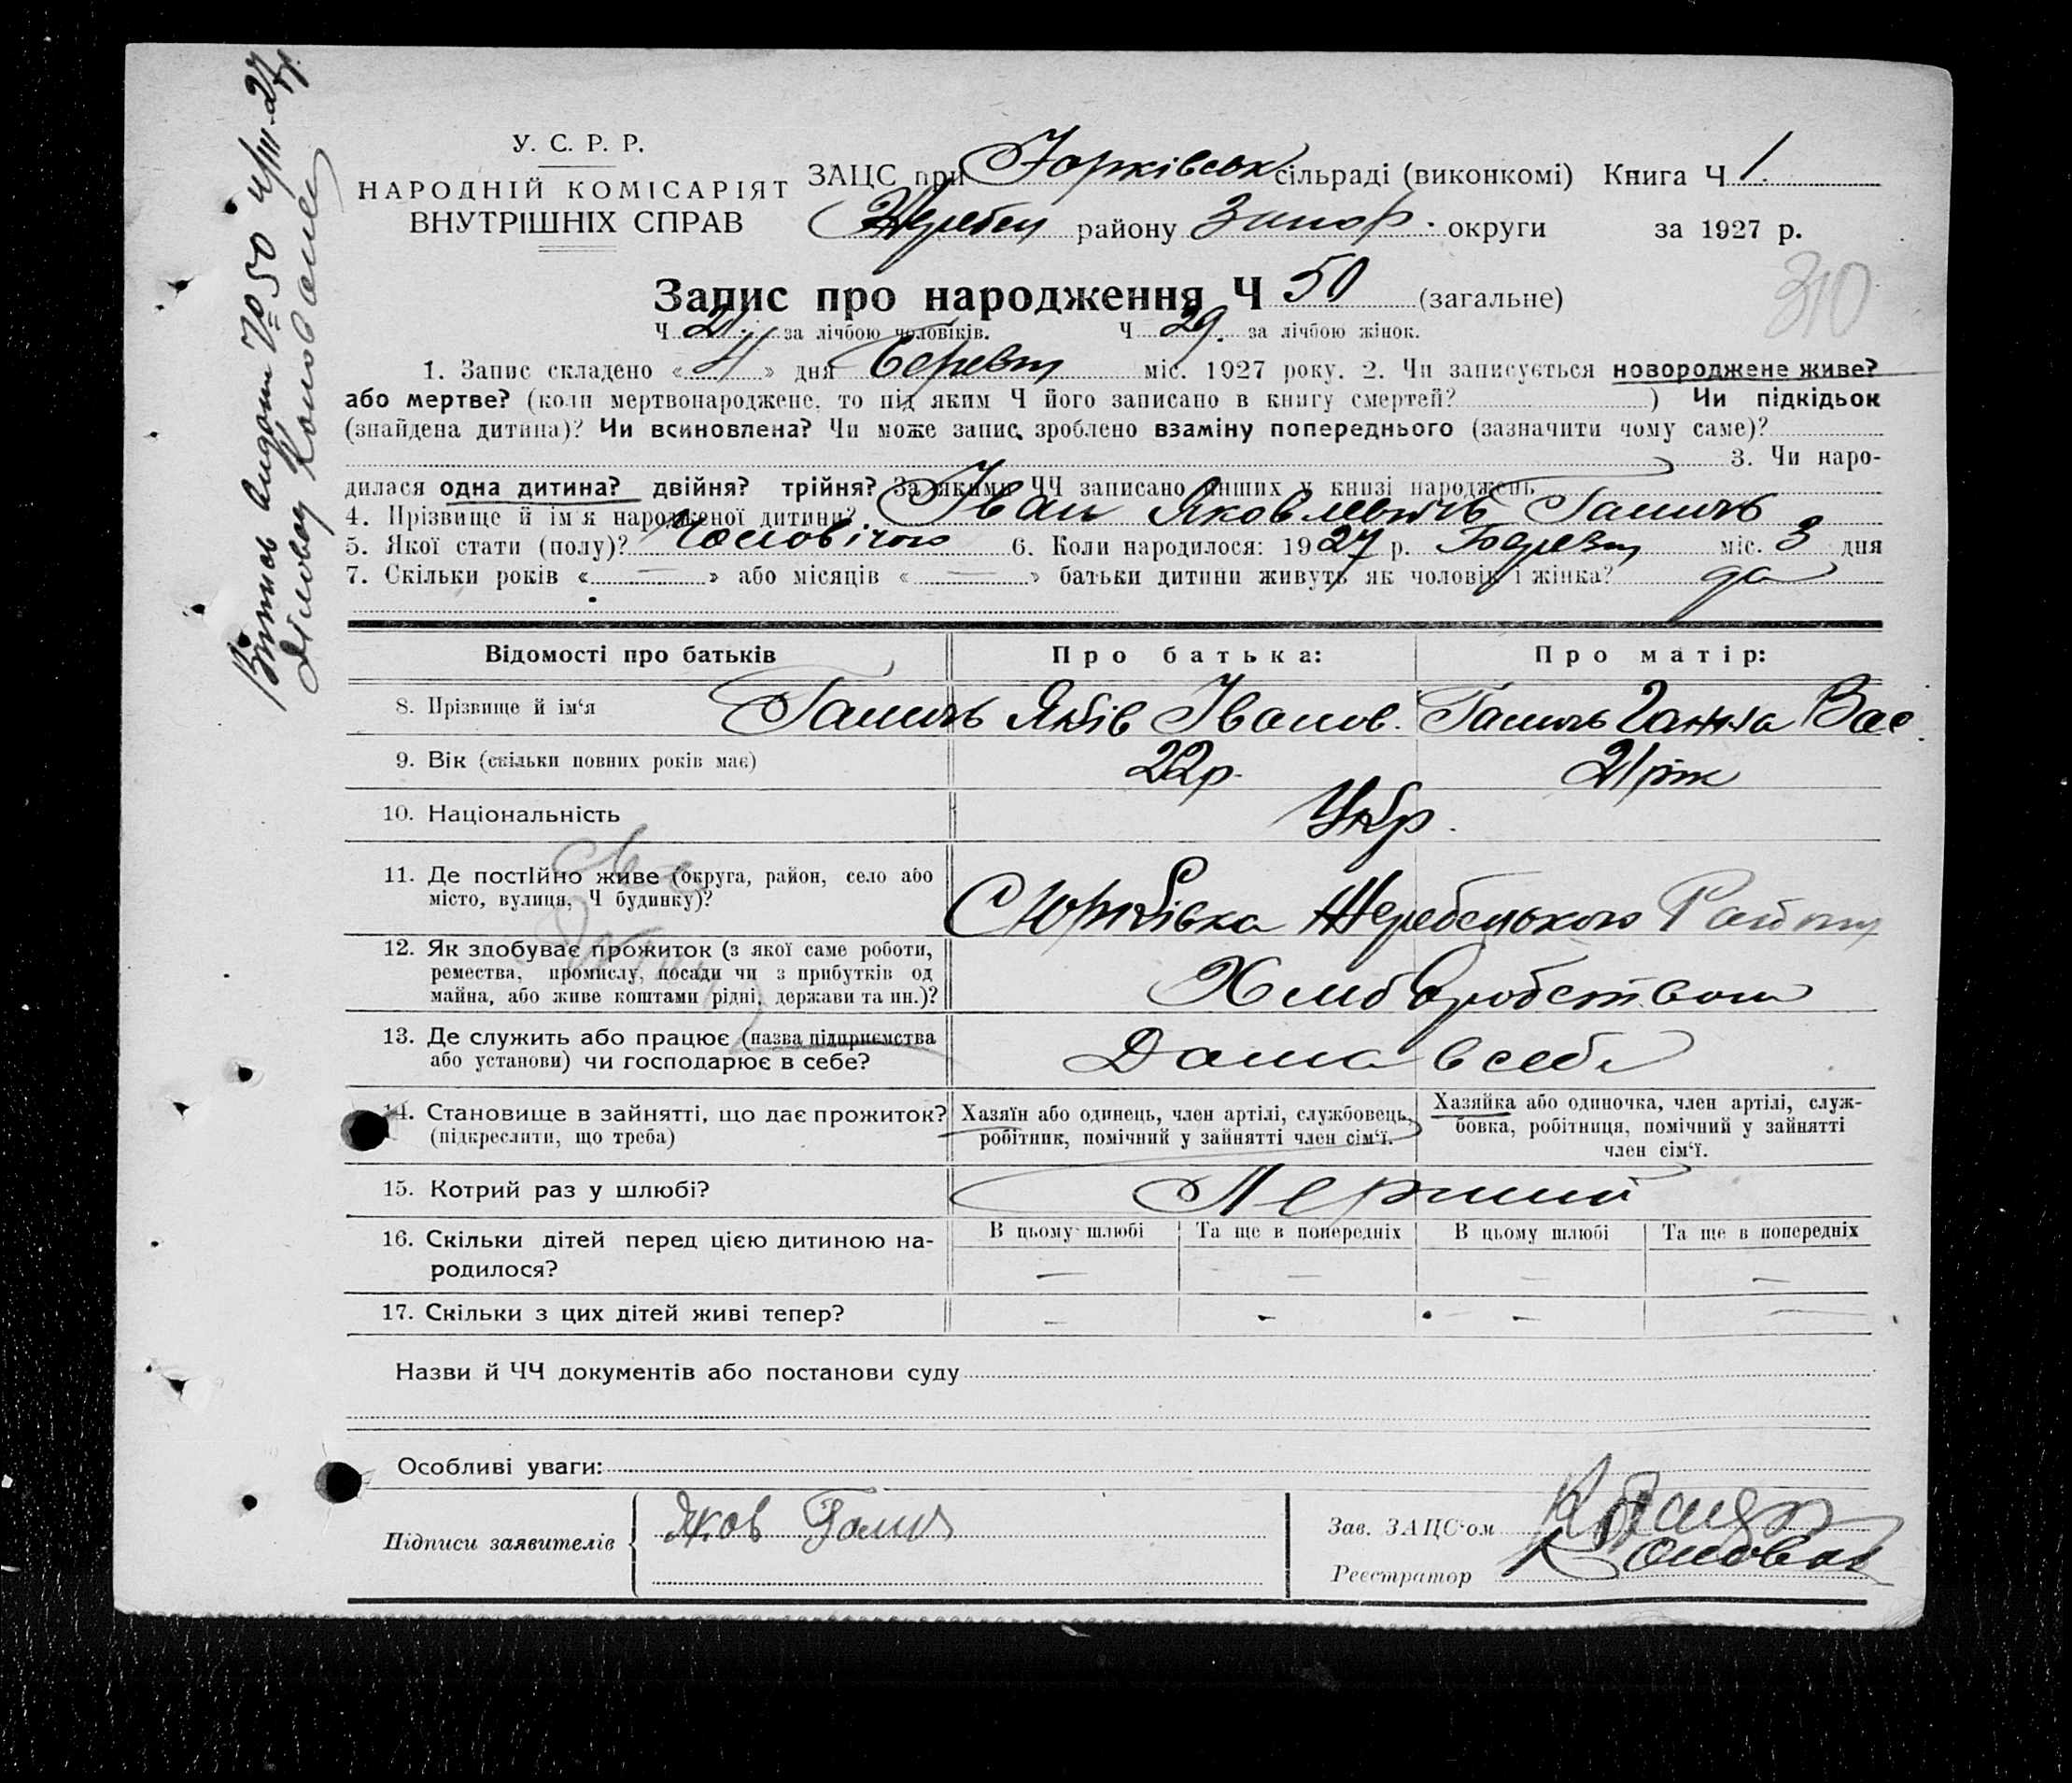 У. С. Р. Р.
НАРОДНІЙ КОМІСАРІЯТ
ВНУТРІШНІХ СПРАВ
ЗАЦС при Юрківськ сільраді (виконкомі) Книга Ч 1.
Жеребец району Запор. округи за 1927 р.
310
Запис про народження Ч 50 (загальне)
Ч 21 за лічбою чоловіків. Ч 29. за лічбою жінок.
1. Запис складено « 4 » дня Березня міс. 1927 року. 2. Чи записується новороджене живе?
або мертве? (коли мертвонароджене, то під яким Ч його записано в книгу смертей? ) Чи підкідьок
(знайдена дитина)? Чи всиновлена? Чи може запис зроблено взаміну попереднього (зазначити чому саме)?
3. Чи наро-
дилася одна дитина? двійня? трійня? За якими ЧЧ записано инших у книзі народжень
4. Прізвище й ім'я народженої дитини? Іван Яковлевичь Галичь
5. Якої стати (полу)? Чоловічого 6. Коли народилося: 1927 р. Березня міс. 3 дня
7. Скільки років « — » або місяців « — » батьки дитини живуть як чоловік і жінка? да
Відомості про батьків Про батька: Про матір:
8. Прізвище й ім'я Галичь Яків Іванов. Галичь Ганна Вас.
9. Вік (скільки повних років має) 22р. 21 рік
10. Національність Укр.
11. Де постійно живе (округа, район, село або
місто, вулиця, Ч будинку)?
С Юрківка Жеребецького Району
12. Як здобуває прожиток (з якої саме роботи,
ремества, промислу, посади чи з прибутків од
майна, або живе коштами рідні, держави та ин.)?
Хліборобством
13. Де служить або працює (назва підприємства
або установи) чи господарює в себе?
Дома в себе
14. Становище в зайнятті, що дає прожиток?
(підкреслити, що треба)
Хазяїн або одинець, член артілі, службовець,
робітник, помічний у зайнятті член сім'ї.
Хазяйка або одиночка, член артілі, служ-
бовка, робітниця, помічний у зайнятті
член сім'ї.
15. Котрий раз у шлюбі? Перший
16. Скільки дітей перед цією дитиною на-
родилося?
В цьому шлюбі Та ще в попередніх В цьому шлюбі Та ще в попередніх
— — — —
17. Скільки з цих дітей живі тепер? — — — —
Назви й ЧЧ документів або постанови суду
Особливі уваги:
Підписи заявителів Яков Галич
Зав. ЗАЦС'ом
Реєстратор